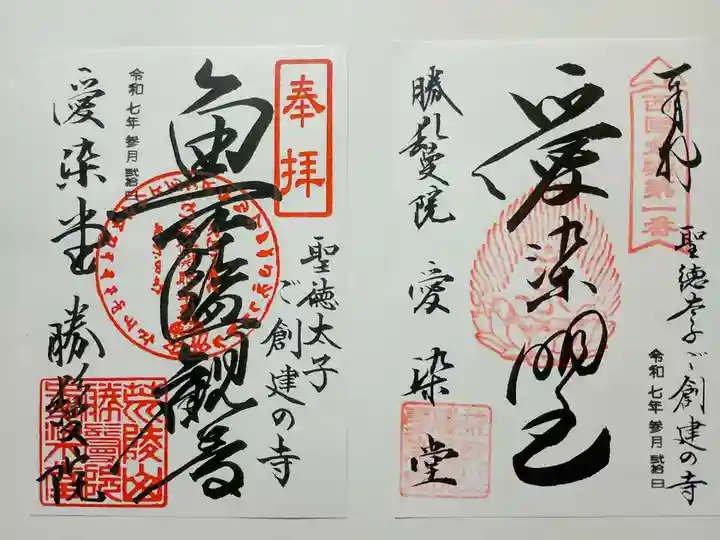 奉拝
魚籃観音
聖徳太子
ご創建の寺
令和七年参月弐拾日
愛染堂
勝鬘院
荒陵山
勝鬘院
奉拝
西国愛染第一番
聖徳太子ご創建の寺
令和七年参月弐拾日
愛染明王
勝鬘院
愛染堂